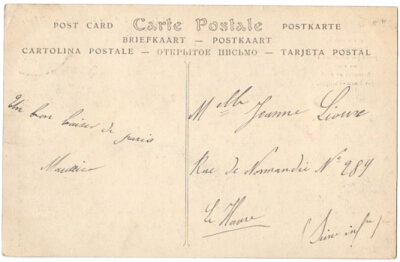 POST CARD Carte Postale POSTKARTE
BRIEFKAART — POSTKAART
CARTOLINA POSTALE — ОТКРЫТОЕ ПИСЬМО — TARJETA POSTAL
Un bon baiser de Paris
Maurice
Melle Jeanne Lieure
Rue de Normandie N° 289
Le Havre
(Seine infre)